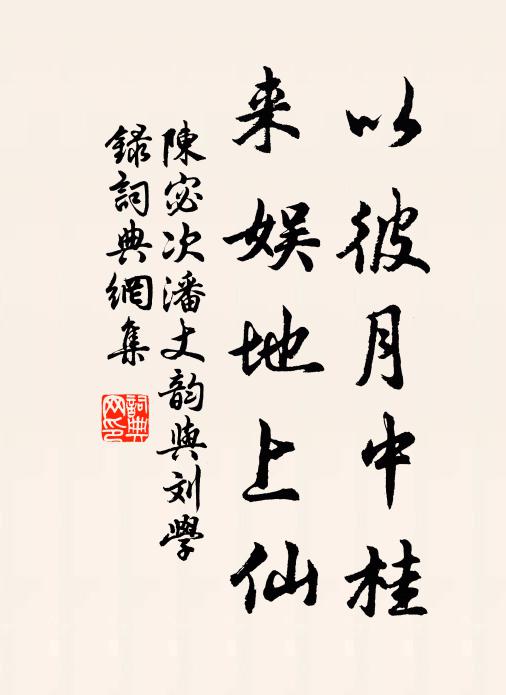 以彼月中桂
来娱地上仙
陳宓次潘丈韵與刘學
録詞典網集
詞典网印